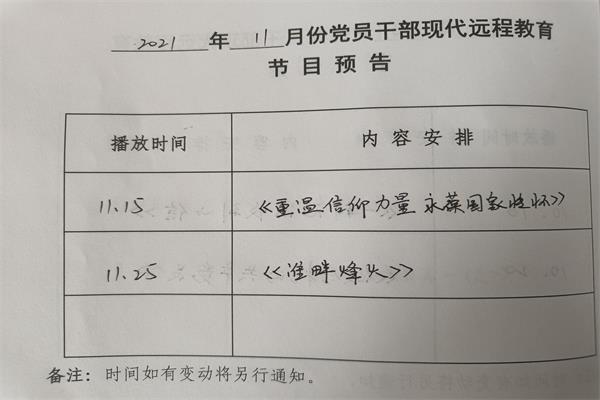 2021 年 11 月份党员干部现代远程教育
节目预告
播放时间 内容安排
11.15 《重温信仰力量 永葆国家情怀》
11.25 《淮畔烽火》
备注：时间如有变动将另行通知。